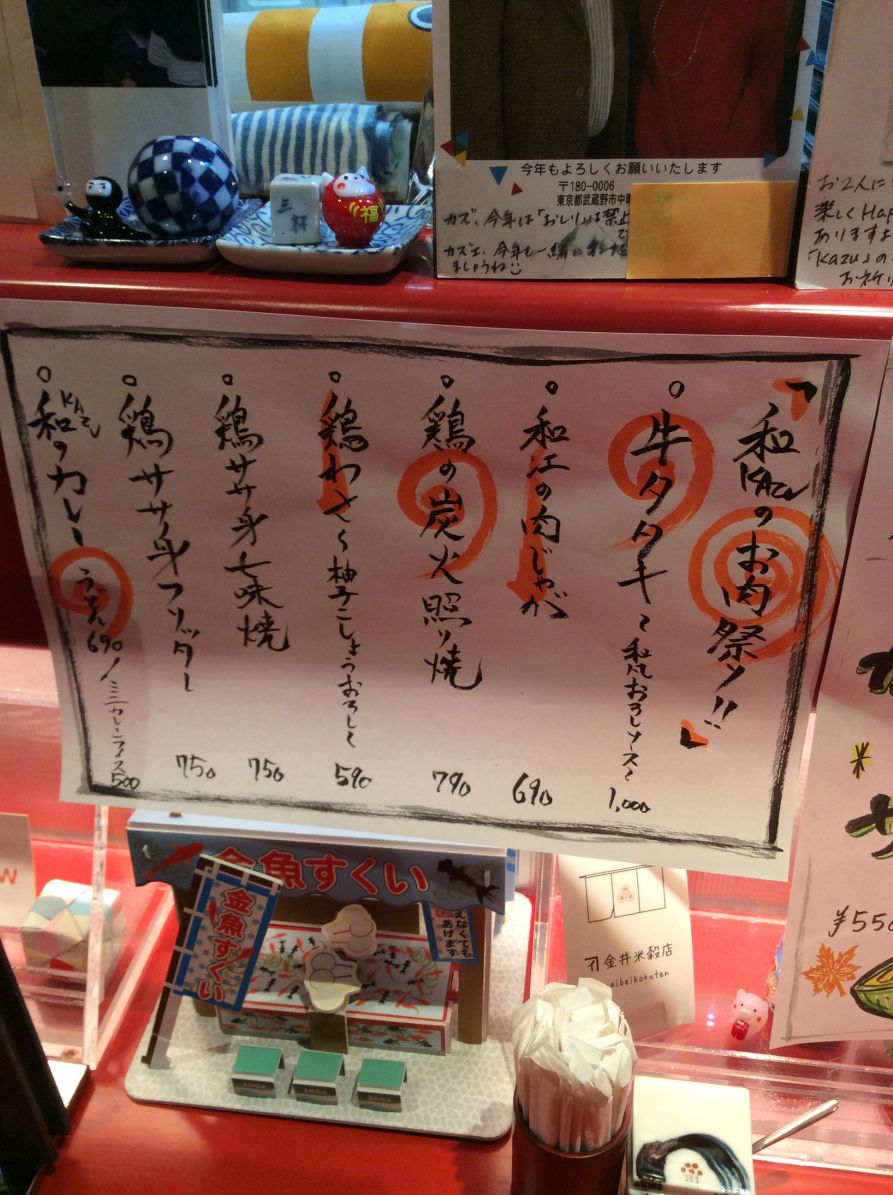 三杯
福
今年もよろしくお願いいたします
〒180-0006
東京都武蔵野市中
カズ、今年は「おしりは禁止
カズエ、今年も一緒に
ましょうね
お2人に
楽しくHap
ありますよ
「Kazu」の
「和KAZUのお肉祭り!!」
○牛タタキ〜和風おろしソース〜 1,000
○和江の肉じゃが 690
○鶏の炭火照り焼 790
○鶏わさ〜柚子こしょうおろしと 590
○鶏ササ身七味焼 750
○鶏ササ身フリッター 750
○和KAZUのカレーうどん690/ミニカレーライス500
金魚すくい
金魚すくい
えなくても
あげます
金井米穀店
aibeikokuten
W
¥550